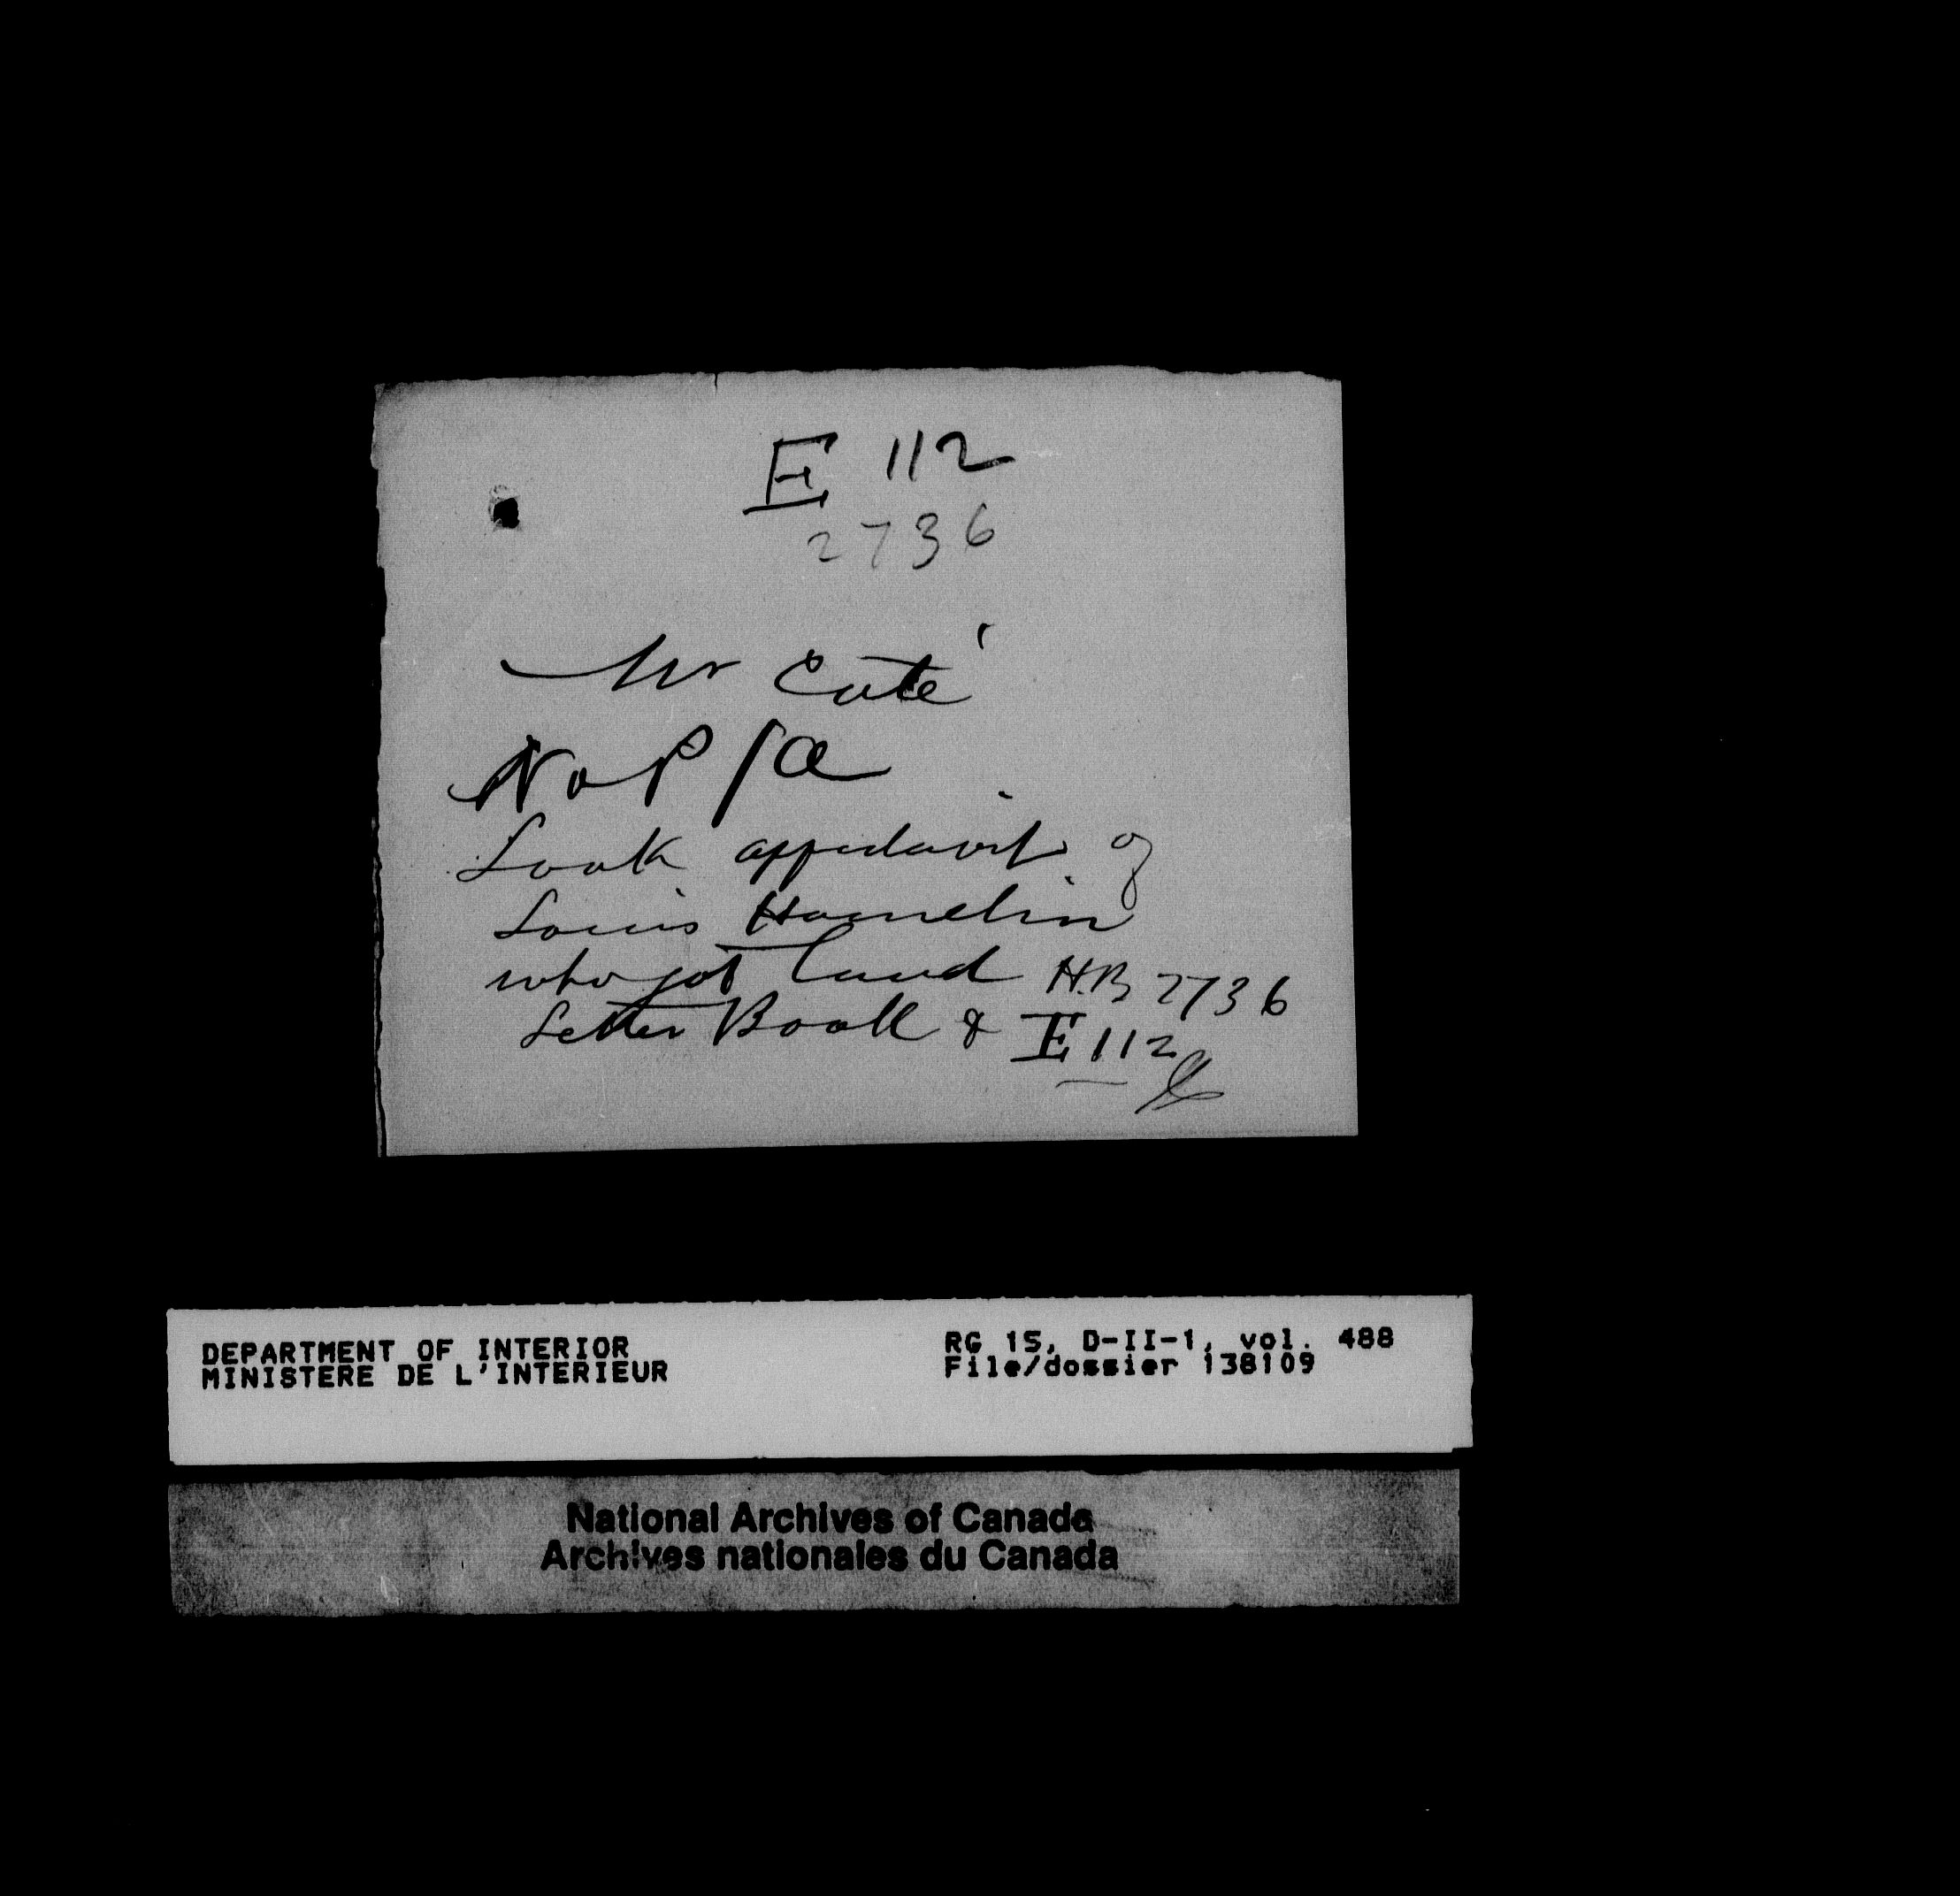 E 112
2736
Mr Coté
No P/a
Look affidavit of
Louis Hamelin
who got land H.B 2736
Letter Book & E 112
DEPARTMENT OF INTERIOR
MINISTERE DE L'INTERIEUR
RG 15, D-II-1, vol. 488
File/dossier 138109
National Archives of Canada
Archives nationales du Canada